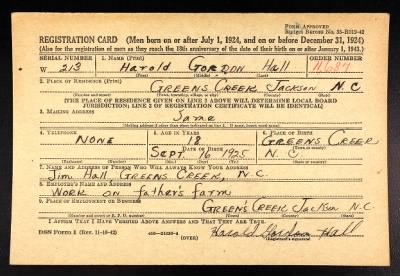 Form Approved
Budget Bureau No. 33-R019-42
REGISTRATION CARD (Men born on or after July 1, 1924, and on or before December 31, 1924)
(Also for the registration of men as they reach the 18th anniversary of the date of their birth on or after January 1, 1943.)
SERIAL NUMBER 1. NAME (Print) ORDER NUMBER
W 213 Harold GORDON Hall
(First) (Middle) (Last)
2. PLACE OF RESIDENCE (Print)
GREENS CREEK JACKSON N.C.
(Number and street) (Town, township, village, or city) (County) (State)
[THE PLACE OF RESIDENCE GIVEN ON LINE 2 ABOVE WILL DETERMINE LOCAL BOARD
JURISDICTION; LINE 2 OF REGISTRATION CERTIFICATE WILL BE IDENTICAL]
3. MAILING ADDRESS
Same
[Mailing address if other than place indicated on line 2. If same, insert word same]
4. TELEPHONE 5. AGE IN YEARS 6. PLACE OF BIRTH
NONE 18 GREENS CREEK
DATE OF BIRTH
SEPT 16 1925 N.C.
(Exchange) (Number) (Mo.) (Day) (Yr.) (State or country)
7. NAME AND ADDRESS OF PERSON WHO WILL ALWAYS KNOW YOUR ADDRESS
Jim Hall GREENS CREEK, N.C.
8. EMPLOYER'S NAME AND ADDRESS
WORK on father's farm
9. PLACE OF EMPLOYMENT OR BUSINESS
GREENS CREEK Jackson N.C.
(Number and street or R. F. D. number) (Town) (County) (State)
I AFFIRM THAT I HAVE VERIFIED ABOVE ANSWERS AND THAT THEY ARE TRUE.
DSS Form 1 (Rev. 11-16-42) (OVER) Harold Gordon Hall
(Registrant's signature)